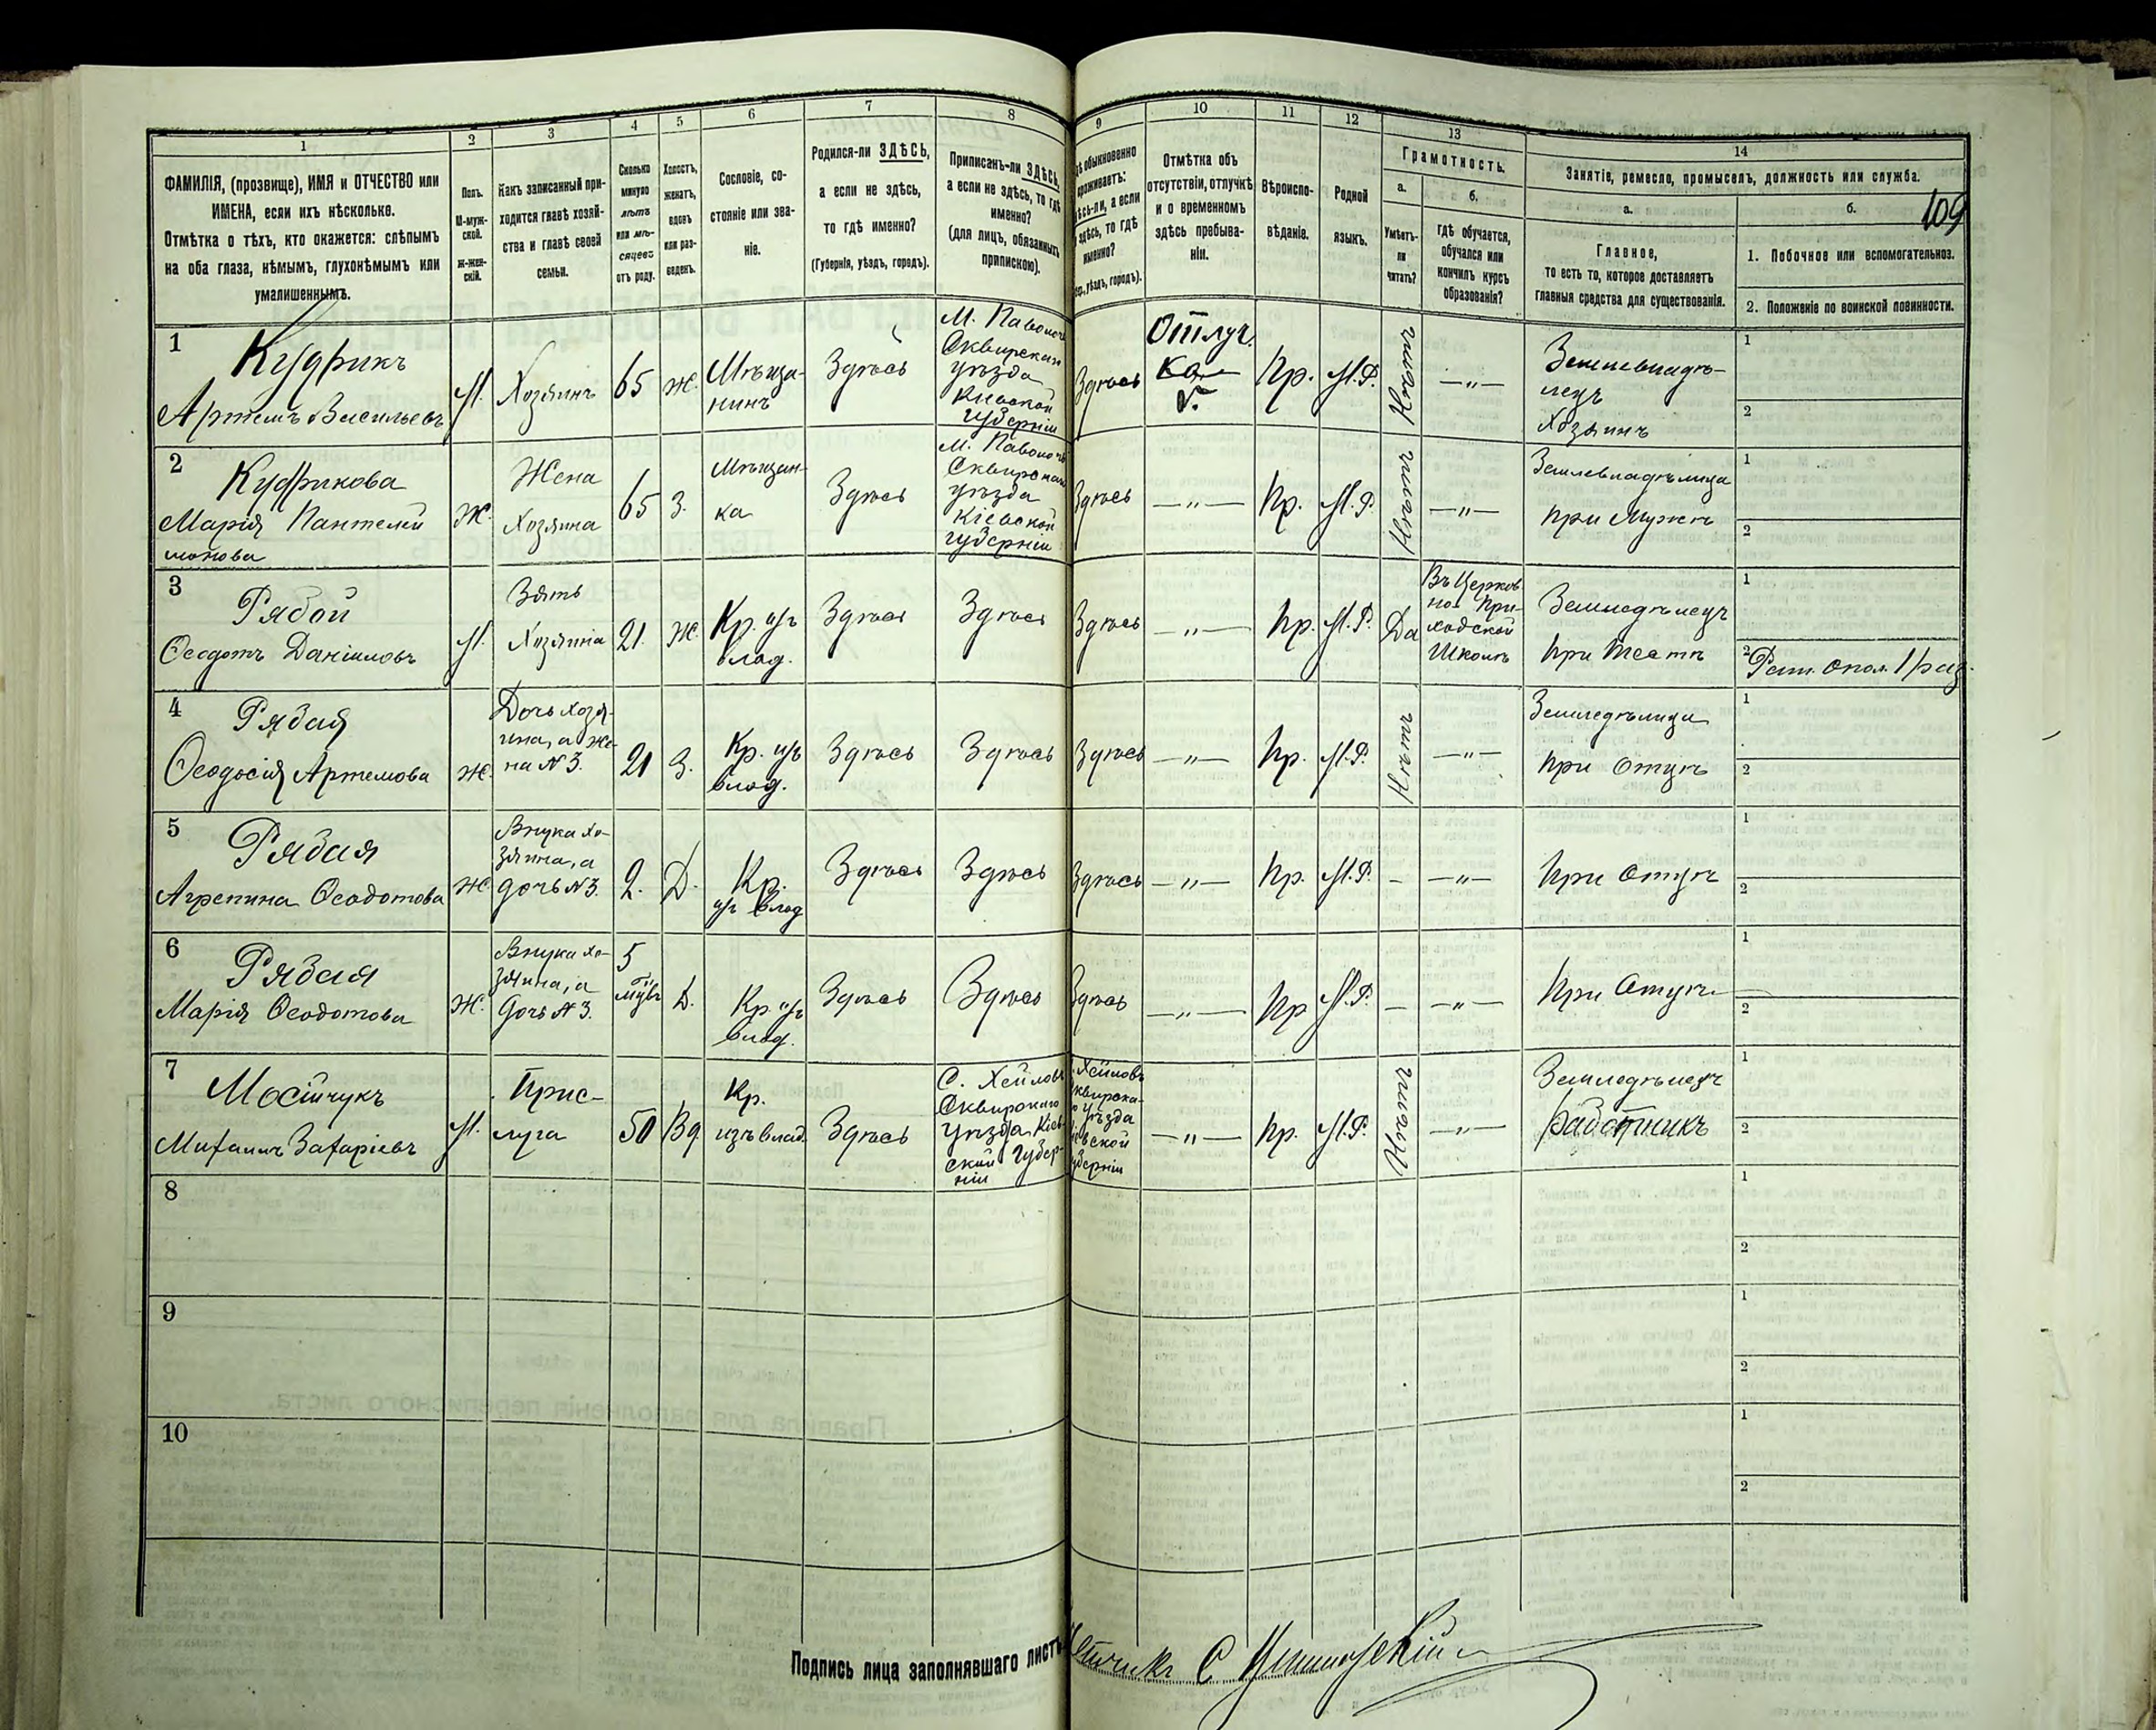 1
ФАМИЛІЯ, (прозвище), ИМЯ и ОТЧЕСТВО или
ИМЕНА, если ихъ нѣсколько.
Отмѣтка о тѣхъ, кто окажется: слѣпымъ
на оба глаза, нѣмымъ, глухонѣмымъ или
умалишеннымъ.
2
Полъ.
М-муж-
ской.
Ж-жен-
скій.
3
Какъ записанный при-
ходится главѣ хозяй-
ства и главѣ своей
семьи.
4
Сколько
минуло
лѣтъ
или мѣ-
сяцевъ
отъ роду.
5
Холостъ,
женатъ,
вдовъ
или раз-
веденъ.
6
Сословіе, со-
стояніе или зва-
ніе.
7
Родился-ли ЗДѢСЬ,
а если не здѣсь,
то гдѣ именно?
(Губернія, уѣздъ, городъ).
8
Приписанъ-ли ЗДѢСЬ,
а если не здѣсь, то гдѣ
именно?
(для лицъ, обязанныхъ
припискою).
9
обыкновенно
проживаетъ:
а если
здѣсь, то гдѣ
именно?
уѣздъ, городъ).
10
Отмѣтка объ
отсутствіи, отлучкѣ
и о временномъ
здѣсь пребыва-
ніи.
11
Вѣроиспо-
вѣданіе.
12
Родной
языкъ.
13
Грамотность.
а.
Умѣетъ-
ли
читать?
б.
гдѣ обучается,
обучался или
кончилъ курсъ
образованія?
14
Занятіе, ремесло, промыселъ, должность или служба.
а.
Главное,
то есть то, которое доставляетъ
главныя средства для существованія.
б.
109
1. Побочное или вспомогательное.
2. Положеніе по воинской повинности.
1
Кудрикъ
Артемъ Васильевъ
М.
Хозяинъ
65
Ж.
Мѣща-
нинъ
Здѣсь
М. Паволочъ
Сквирскаго
уѣзда
Кіевской
губерніи
Здѣсь
Отлуч.
ка
Пр.
М.Р.
Нѣтъ
—„—
Землевладѣ-
лецъ
Хозяинъ
1
2
2
Кудрикова
Марія Пантелей
монова
Ж.
Жена
Хозяина
65
З.
Мѣщан-
ка
Здѣсь
М. Паволочъ
Сквирскаго
уѣзда
Кіевской
губерніи
Здѣсь
—„—
Пр.
М.Р.
Нѣтъ
—„—
Землевладѣлица
при Мужѣ
1
2
3
Рябой
Ѳеодотъ Даніиловъ
М.
Зять
Хозяина
21.
Ж.
Кр. изъ
влад.
Здѣсь
Здѣсь
Здѣсь
—„—
Пр.
М.Р.
Да
Въ Церков
но При-
ходской
Школѣ
Земледѣлецъ
при Тестѣ
1
2
Рат. Опол. 1 раз.
4
Рябая
Ѳеодосія Артемова
Ж.
Дочь хозя-
ина, а же-
на №3.
21
З.
Кр. изъ
влад.
Здѣсь
Здѣсь
Здѣсь
—„—
Пр.
М.Р.
Нѣтъ
—„—
Земледѣлица
при Отцѣ
1
2
5
Рябая
Агрепина Ѳеодотова
Ж
Внука хо-
зяина, а
дочь №3.
2.
Д.
Кр.
изъ влад
Здѣсь
Здѣсь
Здѣсь
—„—
Пр.
М.Р.
–
—„—
При Отцѣ
1
2
6
Рябая
Марія Ѳеодотова
Ж.
Внука хо-
зяина, а
Дочь №3.
5
мѣс
Д.
Кр. изъ
влад.
Здѣсь
Здѣсь
Здѣсь
—„—
Пр
М.Р.
–
—„—
При Отцѣ
1
2
7
Мосійчукъ
Михаилъ Захаріевъ
М.
Прис-
луга
50
Вд.
Кр.
изъ влад.
Здѣсь
С. Хейловъ
Сквирскаго
уѣзда Кіев-
ской Губер-
ніи
Хейловъ
Сквирска-
уѣзда
губерніи
—„—
Пр.
М.Р.
Нѣтъ
—„—
Земледѣлецъ
работникъ
1
2
8
1
2
9
1
2
10
1
2
Подпись лица заполнявшаго листъ